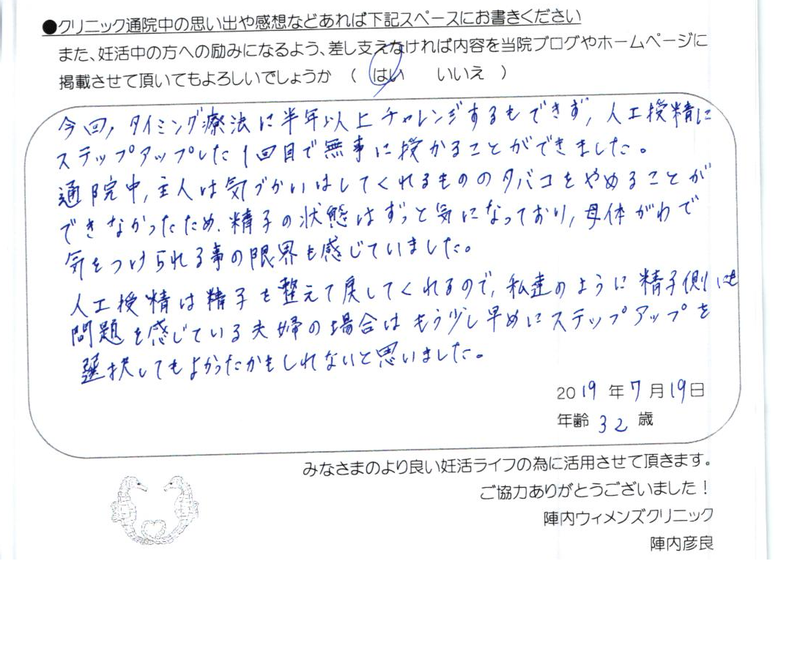 ●クリニック通院中の思い出や感想などあれば下記スペースにお書きください
また、妊活中の方への励みになるよう、差し支えなければ内容を当院ブログやホームページに
掲載させて頂いてもよろしいでしょうか （ はい　いいえ ）
今回、タイミング療法に半年以上チャレンジするもできず、人工授精に
ステップアップした1回目で無事に授かることができました。
通院中、主人は気づかいはしてくれるもののタバコをやめることが
できなかったため、精子の状態はずっと気になっており、母体がわで
気をつけられる事の限界も感じていました。
人工授精は精子を整えて戻してくれるので、私達のように精子側にも
問題を感じている夫婦の場合はもう少し早めにステップアップを
選択してもよかったかもしれないと思いました。
2019年7月19日
年齢 32 歳
みなさまのより良い妊活ライフの為に活用させて頂きます。
ご協力ありがとうございました！
陣内ウィメンズクリニック
陣内彦良